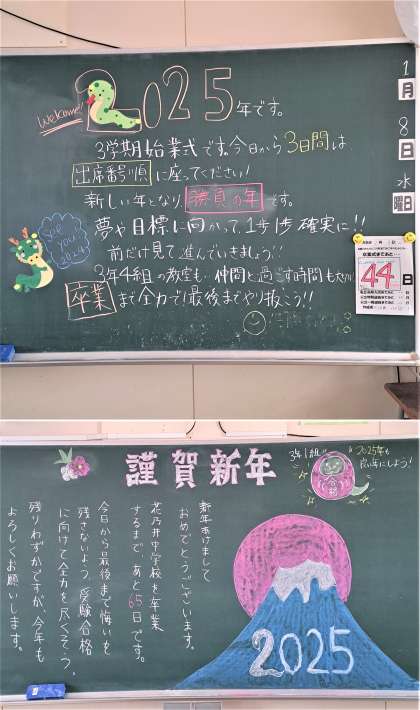 Welcome!
2025年です。
3学期始業式です。今日から3日間は、
出席番号順に座ってください!
新しい年となり、勝負の年です。
夢や目標に向かって、1歩1歩確実に!!
前だけ見て進んでいきましょう!!
3年4組の教室も、仲間と過ごす時間も大切に
卒業まで全力で!最後までやり抜こう!!
See you 2024
1
月
8
日
水
曜日
44
日
謹賀新年
3年1組
2025年も
良い年にしよう!
合格
新年あけまして
おめでとうございます。
花乃井中学校を卒業
するまで、あと65日です。
今日から最後まで悔いを
残さないよう、受験合格
に向けて全力を尽くそう。
残りわずかですが、今年も
よろしくお願いします。
2025